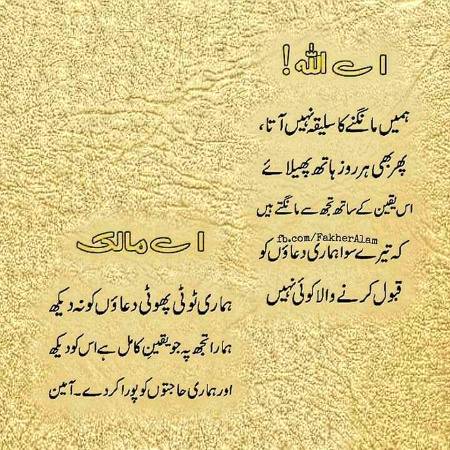 اے اللہ!
ہمیں مانگنے کا سلیقہ نہیں آتا،
پھر بھی ہر روز ہاتھ پھیلائے
اس یقین کے ساتھ تجھ سے مانگتے ہیں
fb.com/FakherAlam
کہ تیرے سوا ہماری دعاؤں کو
قبول کرنے والا کوئی نہیں
اے مالک
ہماری ٹوٹی پھوٹی دعاؤں کو نہ دیکھ
ہمارا تجھ پہ جو یقینِ کامل ہے اس کو دیکھ
اور ہماری حاجتوں کو پورا کر دے۔ آمین